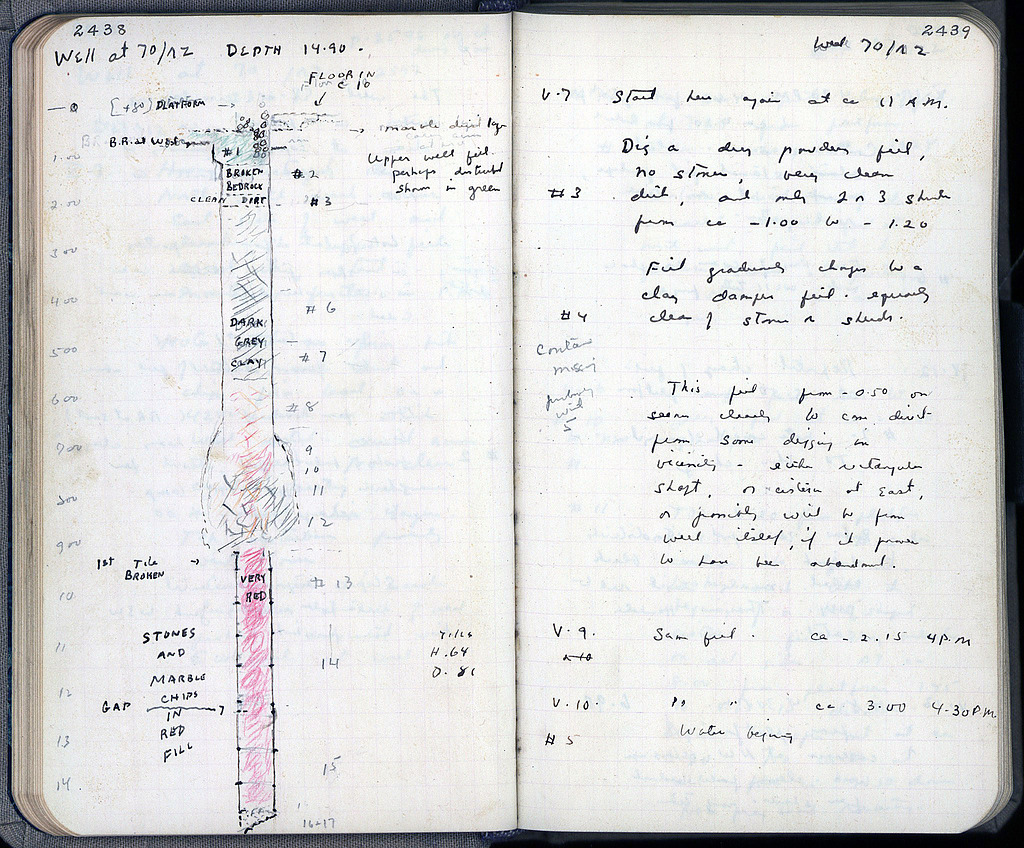 2438
Well at 70/12 DEPTH 14.90.
FLOOR IN
C 10
0 [+80] PLATFORM →
B.R. at West
→ marble digit
#1
1.00
Upper well fill.
perhaps disturbed
shown in green
BROKEN
BEDROCK
#2
2.00
CLEAN DIRT
#3
3.00
4.00
#6
DARK
GREY
CLAY
5.00
#7
6.00
#8
7.00
9
10
11
8.00
12
9.00
1st TILE
BROKEN →
VERY
RED
#13
10
STONES
AND
MARBLE
CHIPS
IN
RED
FILL
11
14
H. 64
D. 81
12
GAP
13
15
14
16-17
2439
70/12
V.7 Start here again at ca 11 A.M.
Dig a dry powdery fill,
no stones, very clean
#3 dirt, and only 2 or 3 sherds
from ca -1.00 to -1.20
Fill gradually changes to a
clay damper fill. equally
#4 clean of stones or sherds.
contex
missing
probably
with
5
This fill from -0.50 on
seems clearly to come direct
from some digging in
vicinity - either rectangular
shaft, or cistern at East,
or possibly will be from
well itself, if it proves
to have been abandoned.
V.9. Same fill. ca - 2.15 4 P.M
V.10. " " ca 3.00 4.30 P.M
#5 Water begins